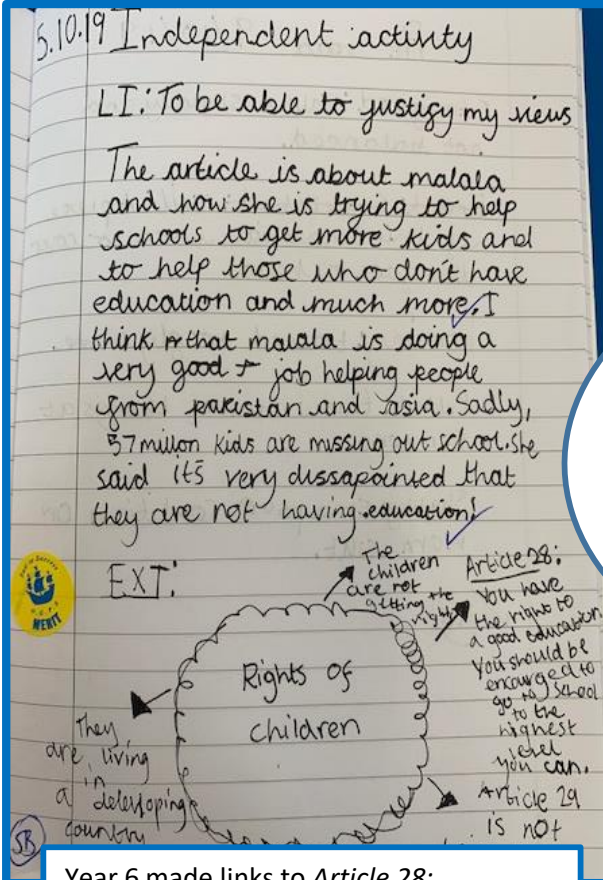 5.10.19 Independent activity
LI: To be able to justify my views
The article is about malala
and how she is trying to help
schools to get more kids and
to help those who don't have
education and much more. I
think that malala is doing a
very good job helping people
from pakistan and asia. Sadly,
57 millon kids are missing out school. She
said it's very dissapointed that
they are not having education!
EXT:
Rights of
children
The
children
are not
getting the
right
Article 28:
You have
the right to
a good education
You should be
encourged to
go to school
to the
highest
level
you can.
They
are living
in
a delevoping
country
Article 29
is not
MERIT
SB
Year 6 made links to Article 28: